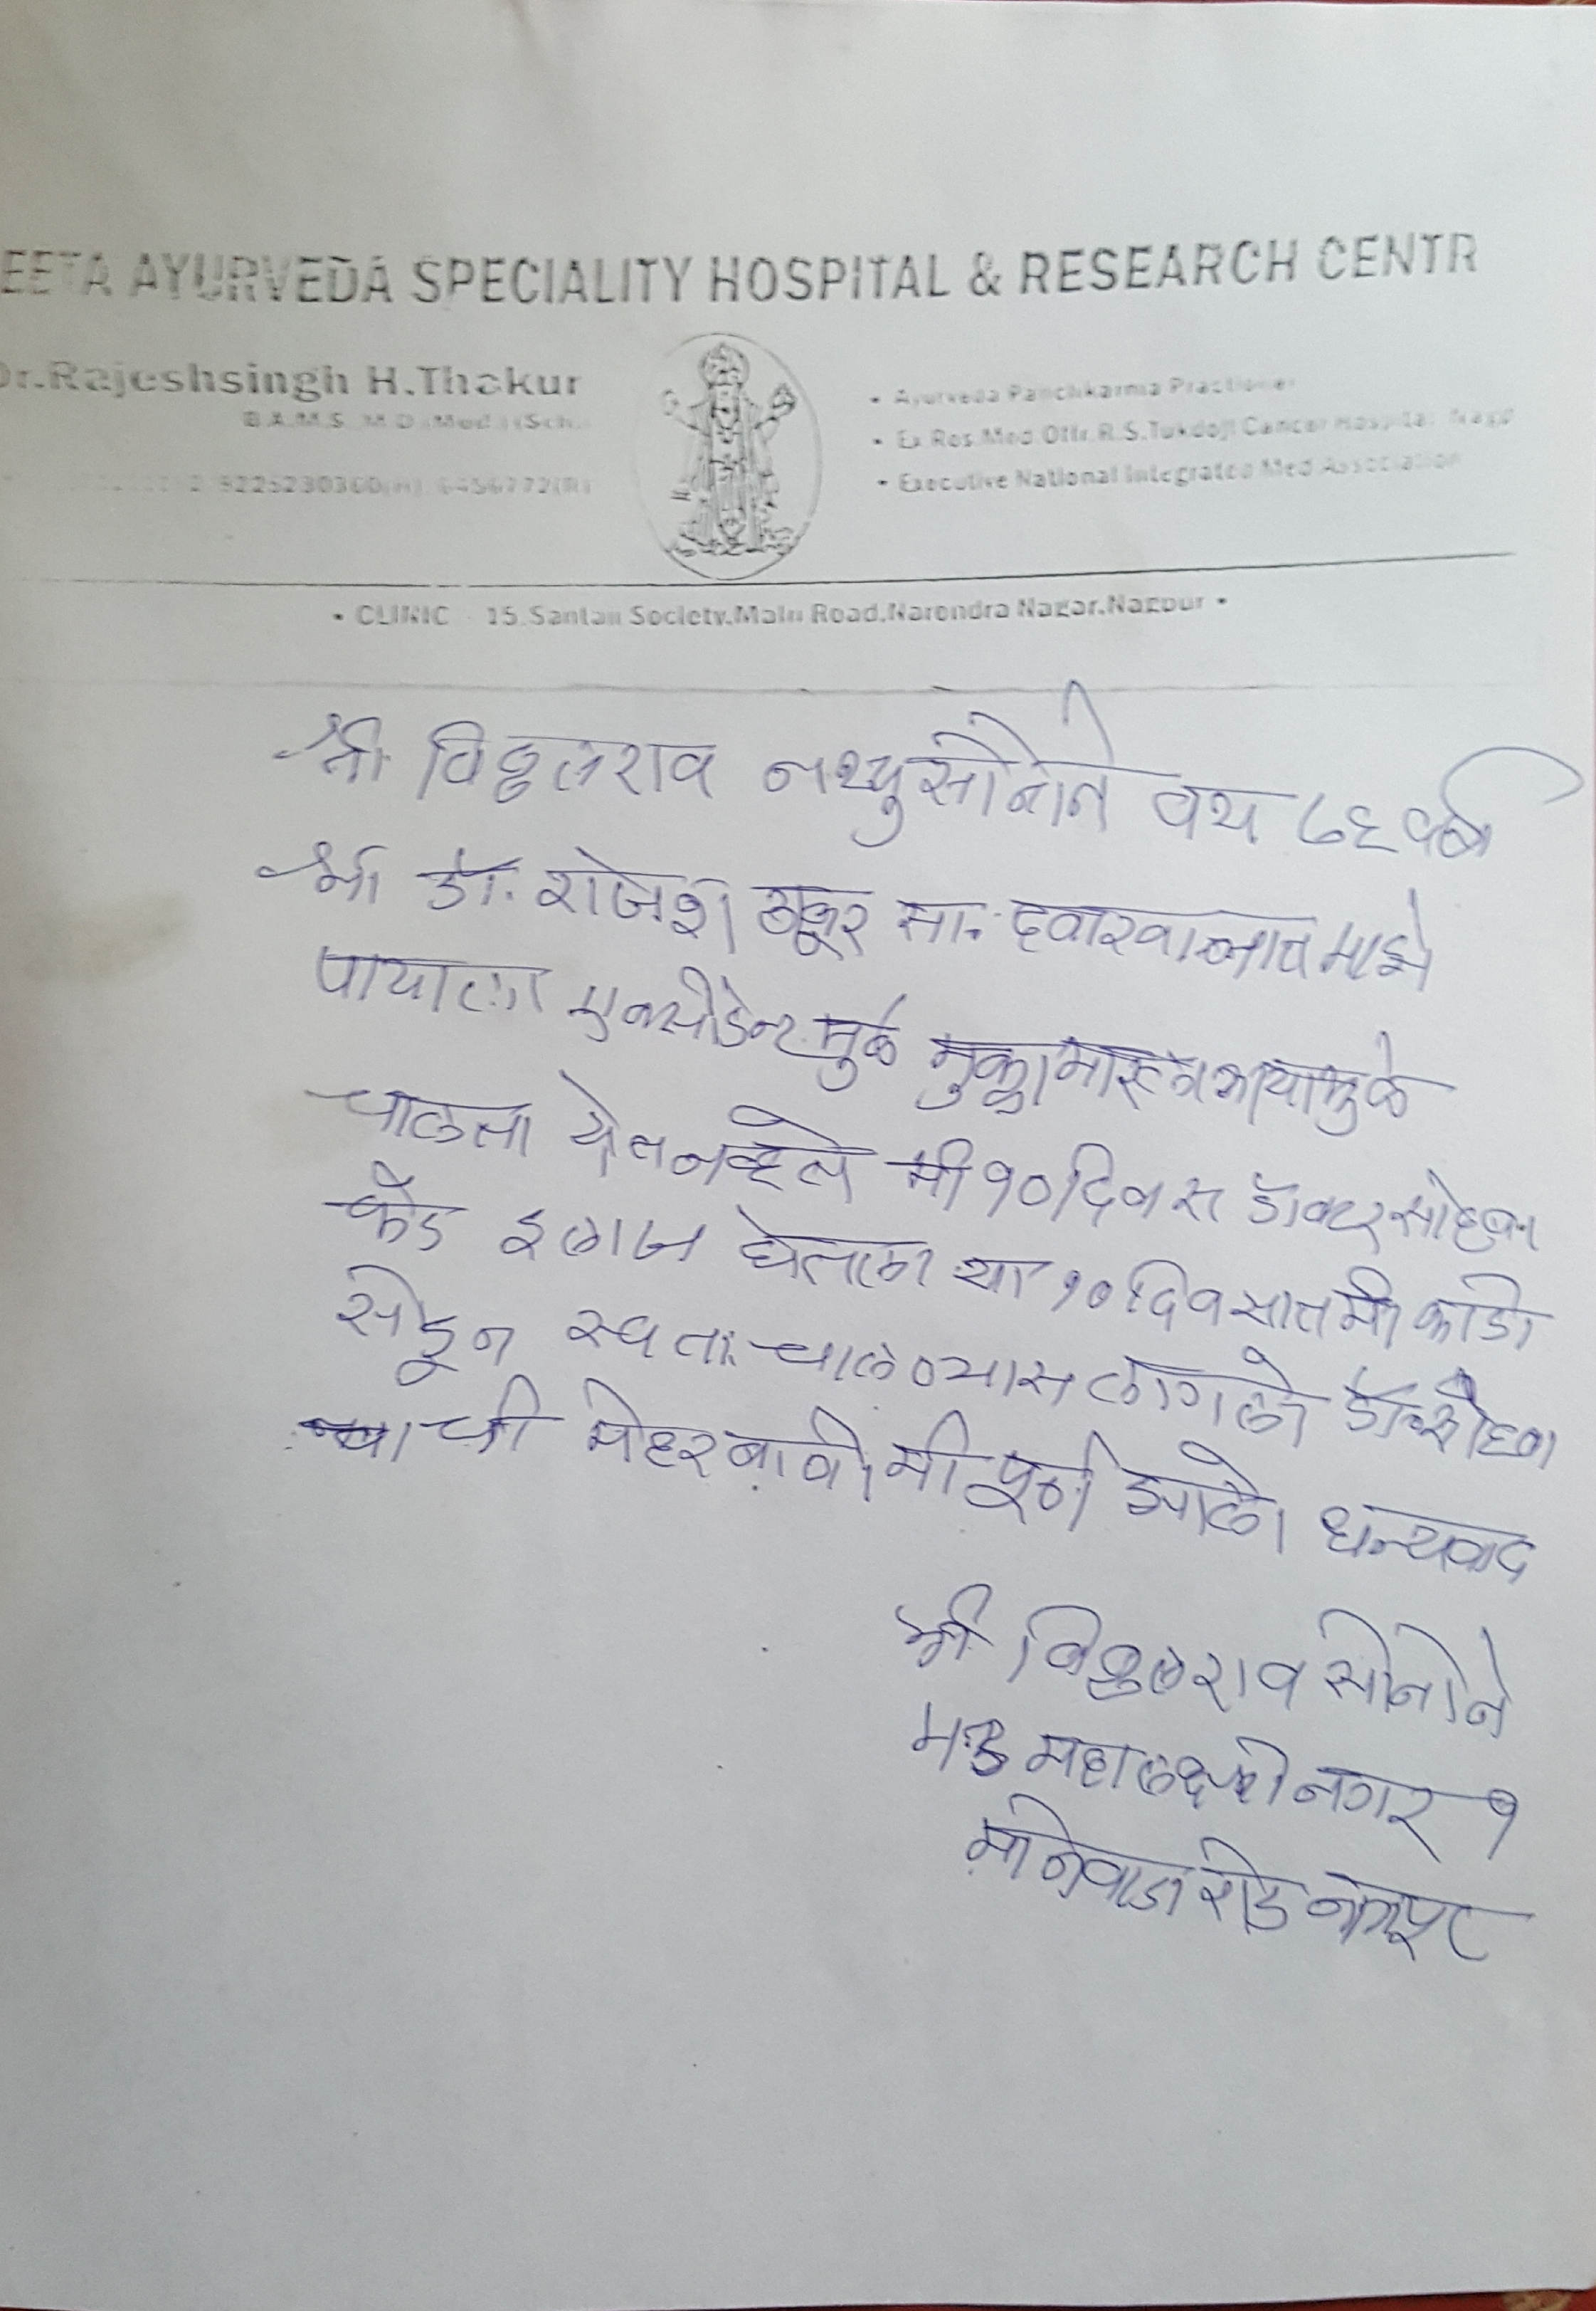 EETA AYURVEDA SPECIALITY HOSPITAL & RESEARCH CENTR
Dr.Rajeshsingh H.Thakur
B.A.M.S. M.D.(Med.)(Sch.
9225230300(H) 6456772(R)
• Ayurveda Panchkarma Practioner
• Ex Res.Med.Offr.R.S.Tukdoji Cancer Hospital Nagp
• Executive National Integrated Med Association
• CLINIC - 15, Santaji Society, Main Road, Narendra Nagar, Nagpur •
श्री विठ्ठलराव नथ्थु सोनोने वय ७६ वर्ष
श्री डॉ. राजेश ठाकूर सा. दवाखान्यात माझे
पायाला एक्सीडेन्ट मुळे मुक्का मार मुळे
चालता येत नव्हते मी १० दिवस डॉक्टर साहेबा
कडे इलाज घेतला या १० दिवसात मी काडी
सोडून स्वताः चालण्यास लागलो
ची मेहरबानी मी पूर्ण झालो धन्यवाद
श्री विठ्ठलराव सोनोने
महालक्ष्मी नगर १
मानेवाडा रोड नागपूर